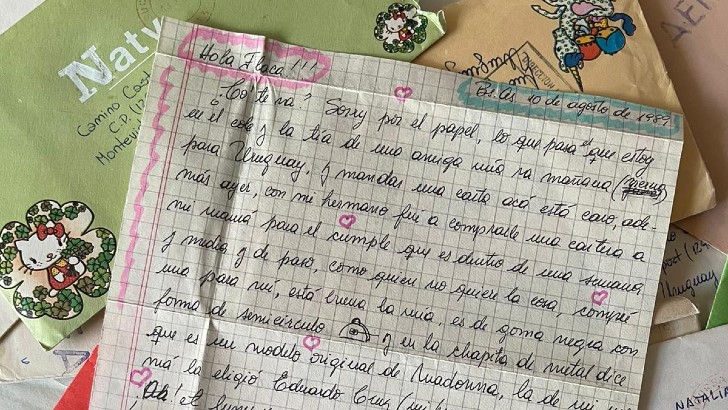 Naty
Camino Cast
C.P. (12
Montevi
DIRECTOR
Uruguay
AER
Hola Flaca!!!
Bs. As. 10 de agosto de 1989.
¿Co' te va? Sorry por el papel, lo que pasa es que estoy
en el cole y la tía de una amiga mía va mañana
para Uruguay, y mandar una carta acá está caro, ade-
más ayer, con mi hermano fui a comprarle una cartera a
mi mamá para el cumple que es dentro de una semana
y media y de paso, como quien no quiere la cosa, compré
una para mí, está buena la mía, es de goma negra con
forma de semicírculo y en la chapita de metal dice
que es un modelo original de Madonna, la de mi ma-
má la eligió Eduardo
Uruguay
NATALIA